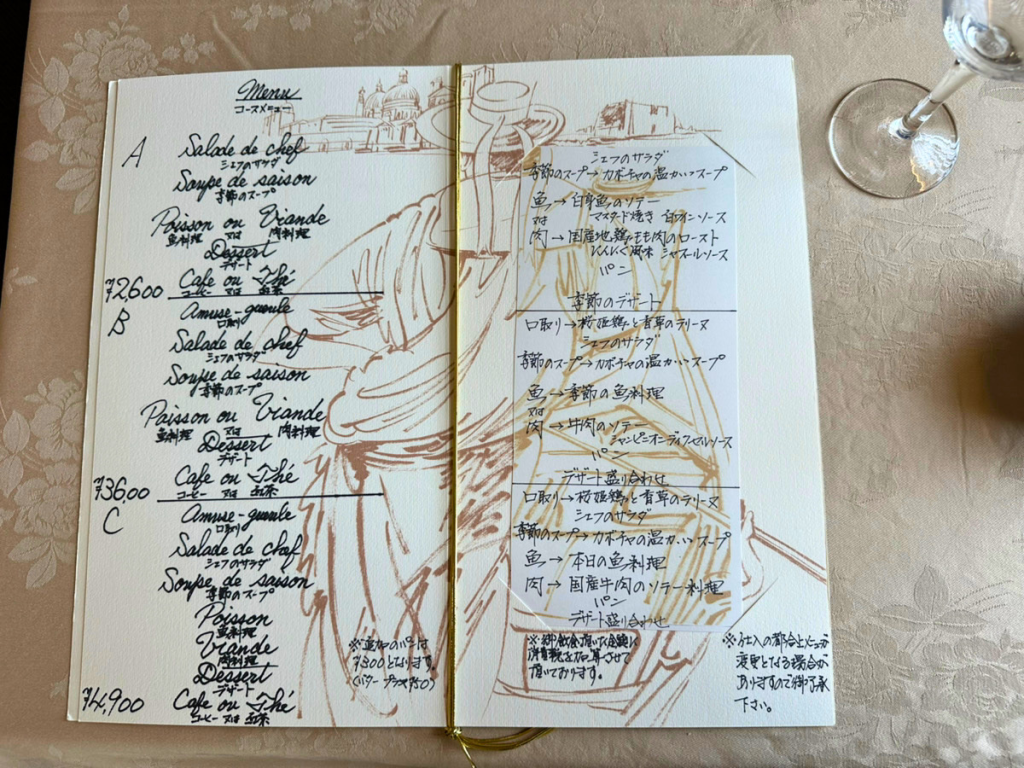 Menu
コースメニュー
A
Salade de chef
シェフのサラダ
Soupe de saison
季節のスープ
Poisson ou Viande
魚料理 又は 肉料理
Dessert
デザート
¥2,600
Cafe ou Thé
コーヒー 又は 紅茶
B
Amuse-gueule
口取り
Salade de chef
シェフのサラダ
Soupe de saison
季節のスープ
Poisson ou Viande
魚料理 又は 肉料理
Dessert
デザート
¥3,600
Cafe ou Thé
コーヒー 又は 紅茶
C
Amuse-gueule
口取り
Salade de chef
シェフのサラダ
Soupe de saison
季節のスープ
Poisson
魚料理
Viande
肉料理
Dessert
デザート
¥4,900
Cafe ou Thé
コーヒー 又は 紅茶
※追加のパンは
¥300となります。
(バター プラス¥50)
シェフのサラダ
季節のスープ→カボチャの温かいスープ
魚→白身魚のソテー
又は マスタード焼き 白ワインソース
肉→国産地鶏もも肉のロースト
にんにく風味 シャスールソース
パン
季節のデザート
口取り→桜姫鶏と香草のテリーヌ
シェフのサラダ
季節のスープ→カボチャの温かいスープ
魚→季節の魚料理
又は
肉→牛肉のソテー
シャンピニオンディクセルソース
パン
デザート盛り合わせ
口取り→桜姫鶏と香草のテリーヌ
シェフのサラダ
季節のスープ→カボチャの温かいスープ
魚→本日の魚料理
肉→国産牛肉のソテー料理
パン
デザート盛り合わせ
※御飲食頂いた金額に
消費税を加算させて
頂いております。
※仕入の都合上
変更となる場合が
ありますので御了承
下さい。